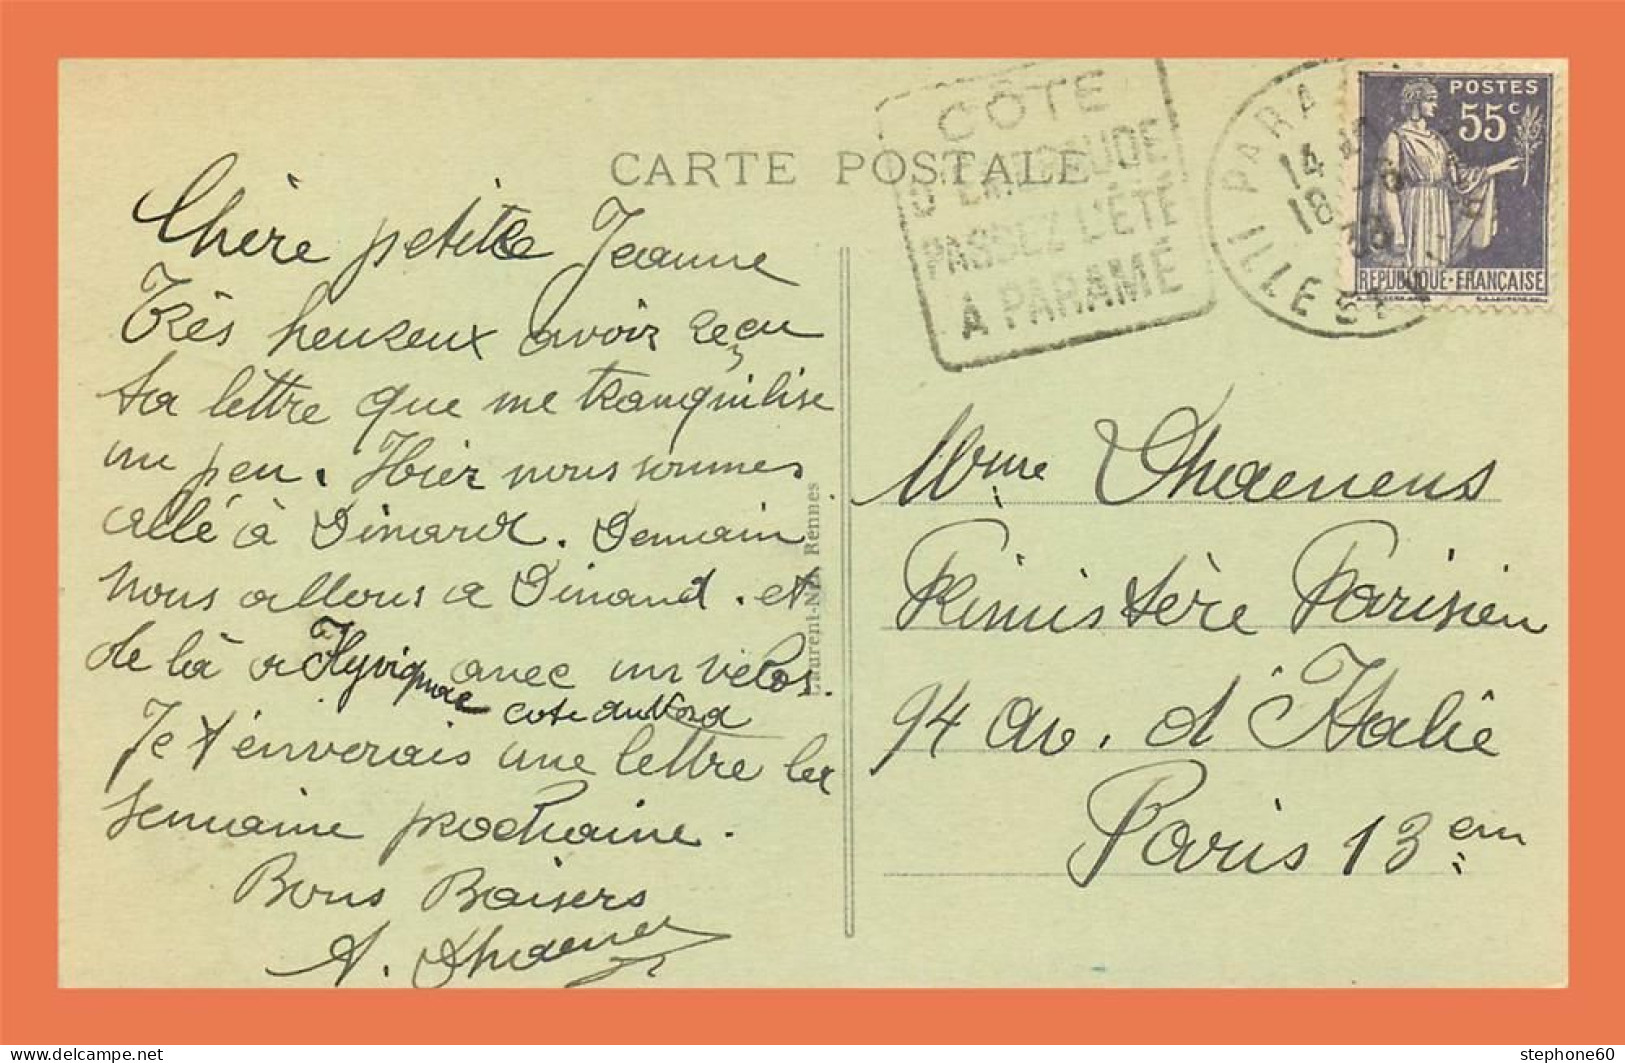 CARTE POSTALE
CÔTE
D'ÉMERAUDE
PASSEZ L'ÉTÉ
A PARAMÉ
PARA
14
18
ILLE ET
POSTES
55c
RÉPUBLIQUE-FRANÇAISE
Chère petite Jeanne
Très heureux avoir reçu
ta lettre que me tranquilise
un peu. Hier nous sommes
allé à Dinard. Demain
nous allons a Dinand. et
de là a avec un velos.
cote du Nord
Je t'enverais une lettre la
semaine prochaine.
Bons Baisers
A. Dhaenens
Laurent-Nel, Rennes
Mme Dhaenens
Primistère Parisien
94 av. d'Italie
Paris 13em
delcampe.net
stephone60